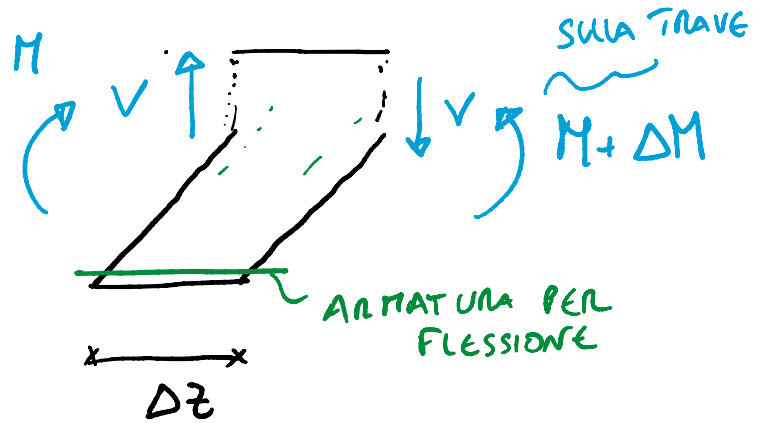 SULLA TRAVE
M
V
V
M + ΔM
ARMATURA PER
FLESSIONE
Δz